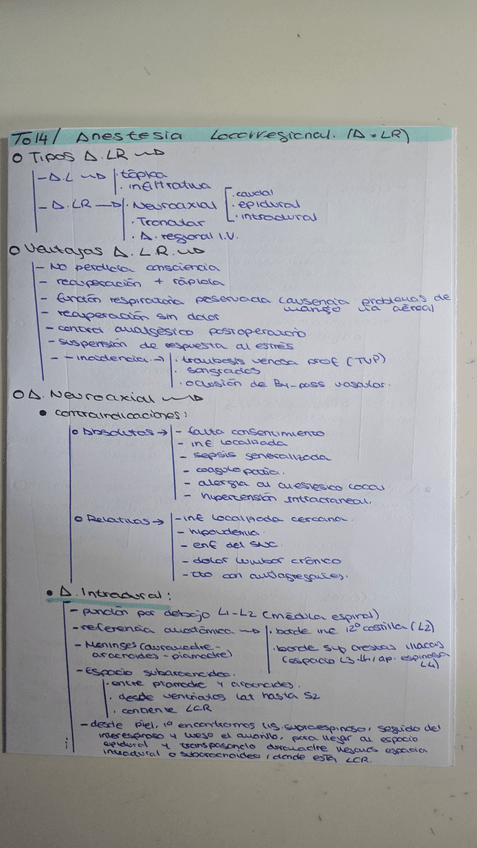 To14/ Anestesia Locorregional. (A.LR)
o Tipos A.LR
- A.L → · tópica
· infiltrativa
- A.LR → · Neuroaxial [· caudal
· epidural
· intradural
· Troncular
· A. regional I.V.
o Ventajas A.L.R.
- No pérdida consciencia
- recuperación + rápida
- función respiratoria preservada (ausencia problemas de
manejo vía aérea)
- recuperación sin dolor
- control analgésico postoperatorio
- suspensión de respuesta al estrés
- - incidencia → · trombosis venosa prof (TVP)
· sangrados
· oclusión de By-pass vascular.
o A. Neuroaxial
• contraindicaciones:
o Absolutas → - falta consentimiento
- inf localizada
- sepsis generalizada
- coagulopatía.
- alergia al anestésico local
- hipertensión intracraneal.
o Relativas → - inf localizada cercana.
- hipovolemia
- enf del SNC.
- dolor lumbar crónico
- tto con antiagregantes.
• A. Intradural:
- punción por debajo L1-L2 (médula espinal)
- referencia anatómica → · borde inf 12º costilla (L2)
· borde sup crestas iliacas
(espacio L3-L4/ap. espinosa
L4)
- Meninges (duramadre-
aracnoides-piamadre)
- Espacio subaracnoideo.
· entre piamadre y aracnoides.
· desde ventrículos lat hasta S2
· contiene LCR
- desde piel, 1º encontramos lig. supraespinoso, seguido del
interespinoso y luego el amarillo, para llegar al espacio
epidural y traspasando duramadre llegamos espacio
intradural o subaracnoideo, donde está LCR.